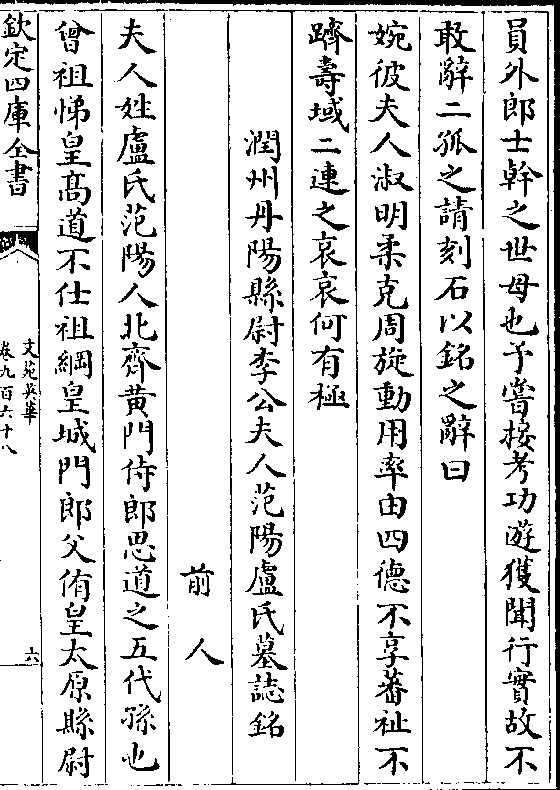 員外郎士幹之世母也予嘗接考功遊獲聞行實故不
敢辭二孤之請刻石以銘之辭曰
婉彼夫人淑明柔克周旋動用率由四德不享蕃祉不
躋壽域二連之哀哀何有極
潤州丹陽縣尉李公夫人范陽盧氏墓誌銘
前人
夫人姓盧氏范陽人北齊黄門侍郎思道之五代孫也
曾祖悌皇髙道不仕祖綱皇城門郎父侑皇太原縣尉
欽定四庫全書
文苑英華
卷九百六十八
六